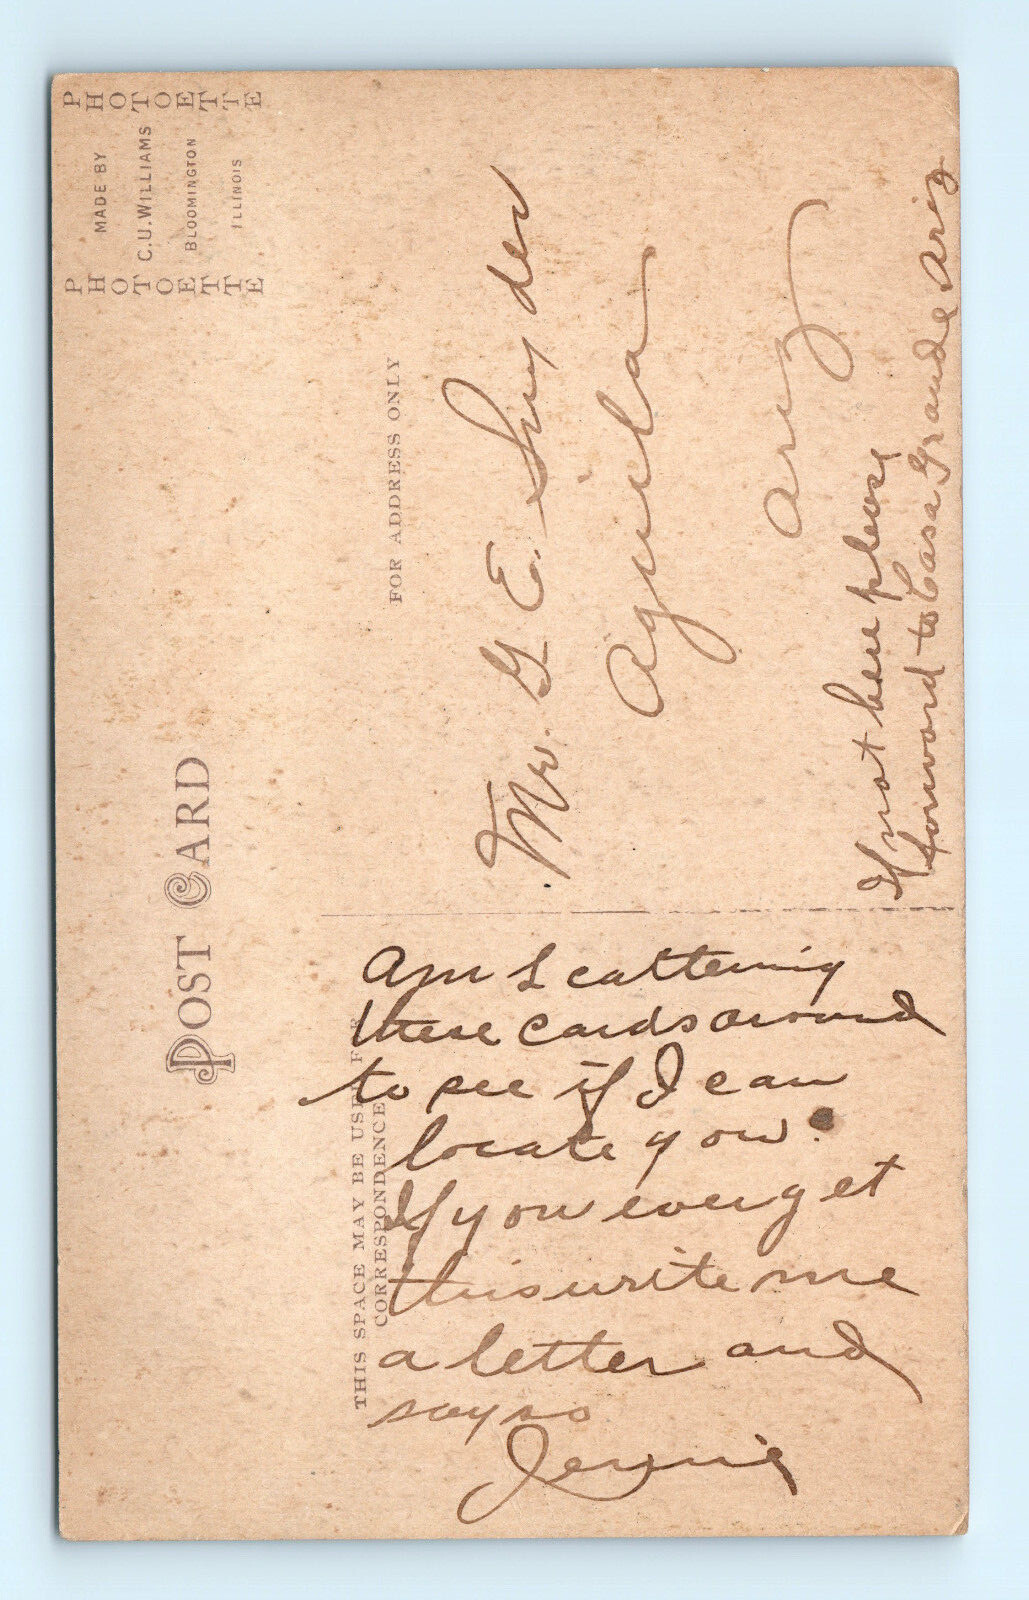 PHOTOETTE
MADE BY
C.U. WILLIAMS
BLOOMINGTON
ILLINOIS
PHOTOETTE
POST CARD
THIS SPACE MAY BE USED FOR
CORRESPONDENCE
FOR ADDRESS ONLY
Am Scattering
these cards around
to see if I can
locate you.
If you ever get
this write me
a letter and
say so
Jennie
Mr. G E. Snyder
Aguila
Ariz
If not here please
forward to Casa Grande Ariz